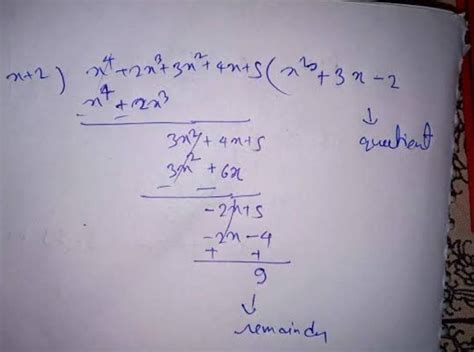 x+2) x⁴+2x³+3x²+4x+5(x³+3x-2
x⁴+2x³
- -
3x²+4x+5
3x²+6x
- -
-2x+5
-2x-4
+ +
9
↓
quotient
↓
remainder